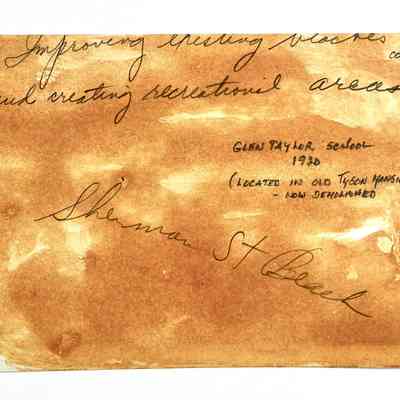 Improving existing beaches
co
and creating recreational areas
GLEN TAYLOR SCHOOL
1920
(LOCATED IN OLD TYSON MANSI
- NOW DEMOLISHED
Sherman St Beach